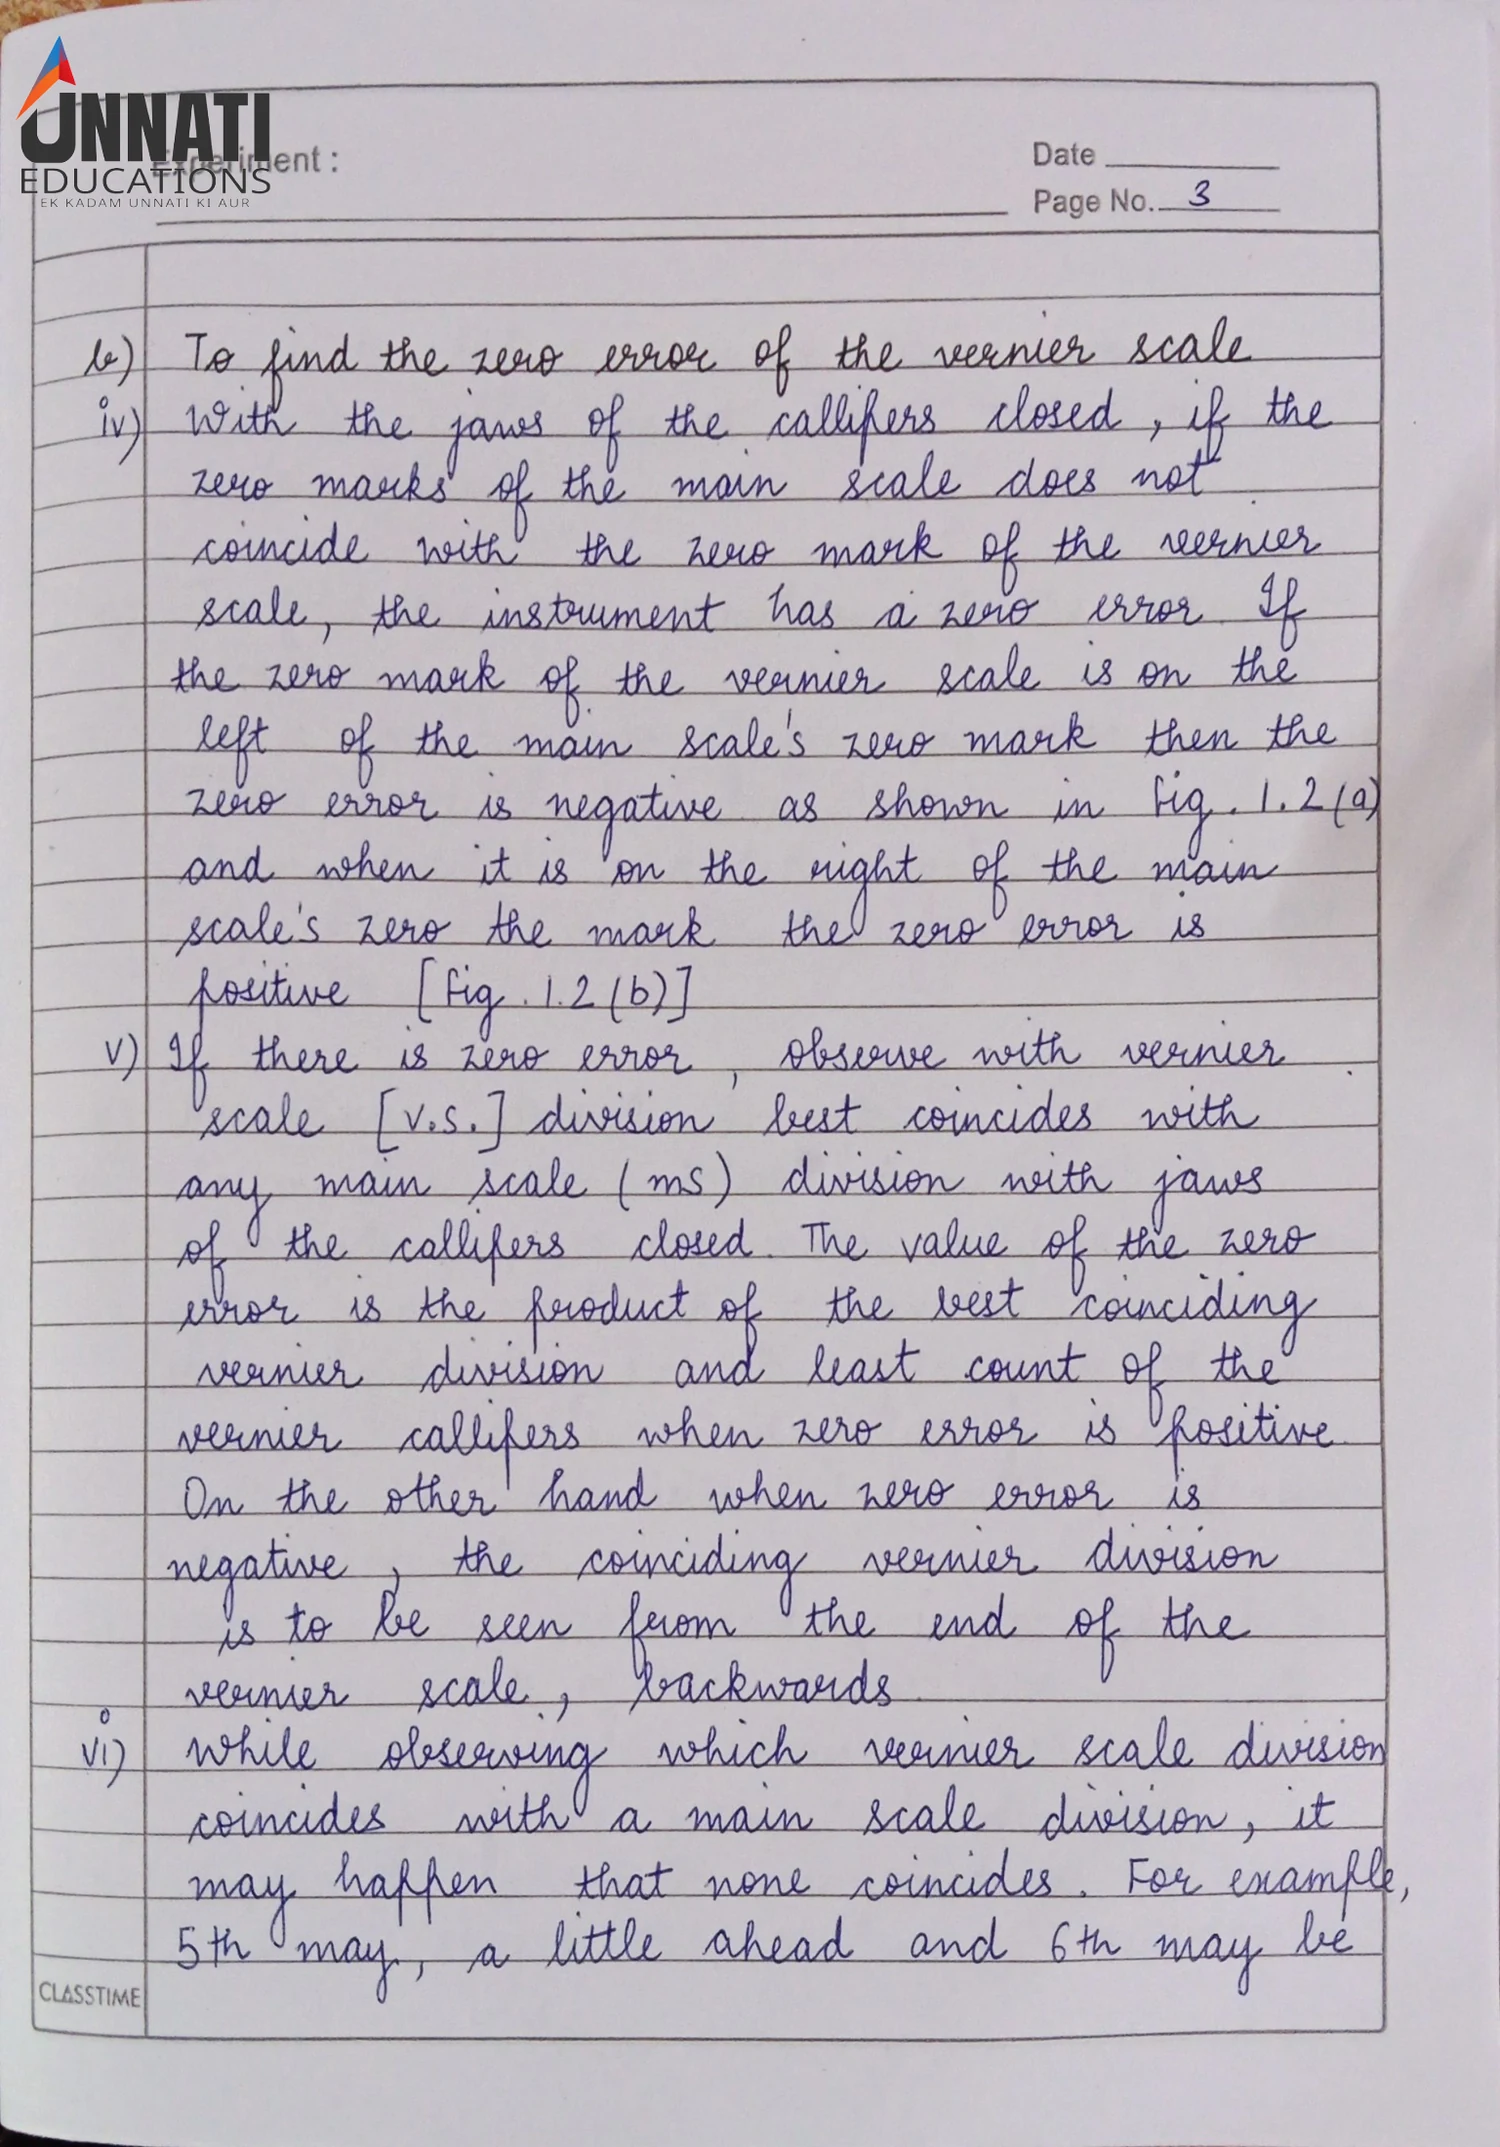 UNNATI
EDUCATIONS
EK KADAM UNNATI KI AUR
Experiment :
Date
Page No. 3
b) To find the zero error of the vernier scale
iv) With the jaws of the callipers closed, if the
zero marks of the main scale does not
coincide with the zero mark of the vernier
scale, the instrument has a zero error. If
the zero mark of the vernier scale is on the
left of the main scale's zero mark then the
zero error is negative as shown in fig. 1.2(a)
and when it is on the right of the main
scale's zero the mark the zero error is
positive [fig. 1.2(b)]
v) If there is zero error, observe with vernier
scale [v.s.] division best coincides with
any main scale (ms) division with jaws
of the callipers closed. The value of the zero
error is the product of the best coinciding
vernier division and least count of the
vernier callipers when zero error is positive.
On the other hand when zero error is
negative, the coinciding vernier division
is to be seen from the end of the
vernier scale, backwards.
vi) While observing which vernier scale division
coincides with a main scale division, it
may happen that none coincides. For example,
5th may, a little ahead and 6th may be
CLASSTIME